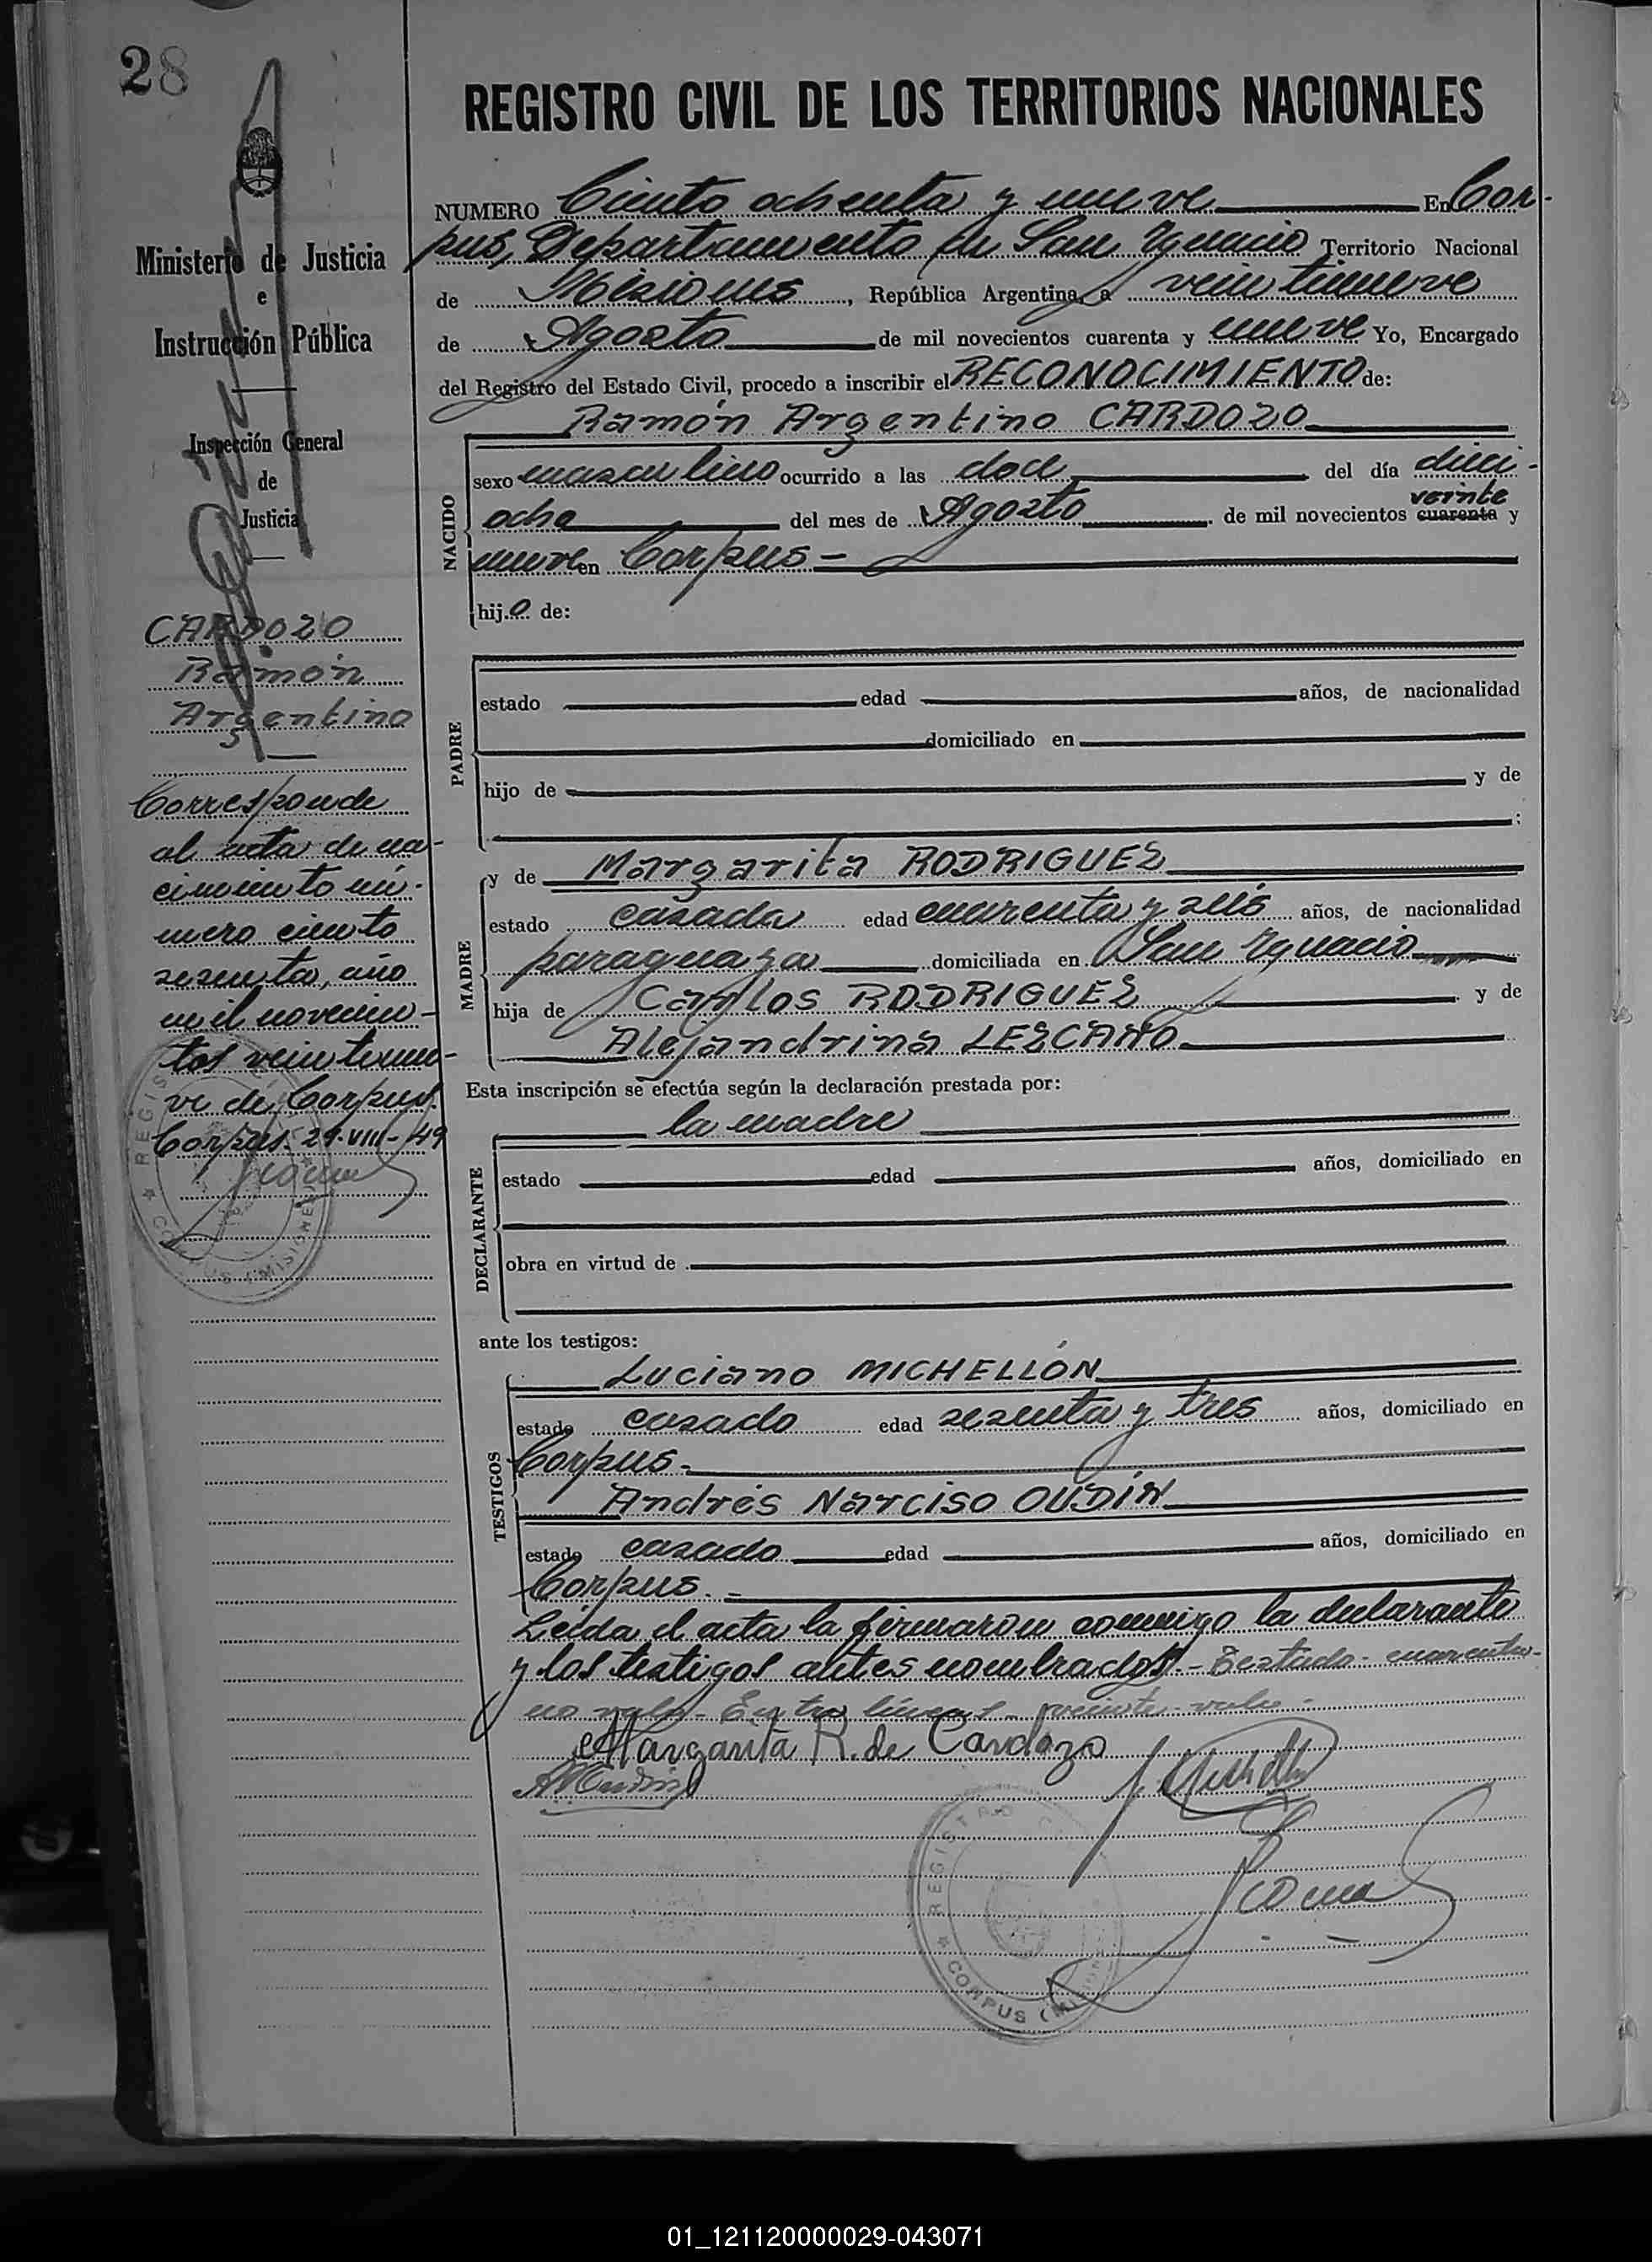 28
REGISTRO CIVIL DE LOS TERRITORIOS NACIONALES
NUMERO Ciento ochenta y nueve En Cor-
pus, Departamento de San Ygnacio Territorio Nacional
de Misiones, República Argentina, a veintinueve
de Agosto de mil novecientos cuarenta y nueve Yo, Encargado
del Registro del Estado Civil, procedo a inscribir el RECONOCIMIENTO de:
Ramón Argentino CARDOZO
NACIDO
sexo masculino ocurrido a las doce del día dieci-
veinte
ocho del mes de Agosto de mil novecientos cuarenta y
nueve en Corpus-
hijo de:
PADRE
estado edad años, de nacionalidad
domiciliado en
hijo de y de
;
MADRE
y de Margarita RODRIGUEZ
estado casada edad cuarenta y seis años, de nacionalidad
paraguaya domiciliada en San Ygnacio
hija de Carlos RODRIGUEZ y de
Alejandrina LEZCANO
Esta inscripción se efectúa según la declaración prestada por:
DECLARANTE
la madre
estado edad años, domiciliado en
obra en virtud de
ante los testigos:
TESTIGOS
Luciano MICHELLÓN
estado casado edad sesenta y tres años, domiciliado en
Corpus.-
Andrés Narciso OUDÍN
estado casado edad años, domiciliado en
Corpus.-
Leída el acta la firmaron conmigo la declarante
y los testigos antes nombrados.- Testado- cuarenta-
no vale- Entre líneas- veinte- vale-
Margarita R. de Cardozo
REGISTRO
CORPUS (MISIONES)
Ministerio de Justicia
e
Instrucción Pública
Inspección General
de
Justicia
CARDOZO
Ramón
Argentino
Corresponde
al acta de na-
cimiento nú-
mero ciento
sesenta, año
mil novecien-
tos veintinue-
ve de Corpus.
Corpus. 29-VIII-49
REGIS
CORPUS (MISIONES
01_121120000029-043071